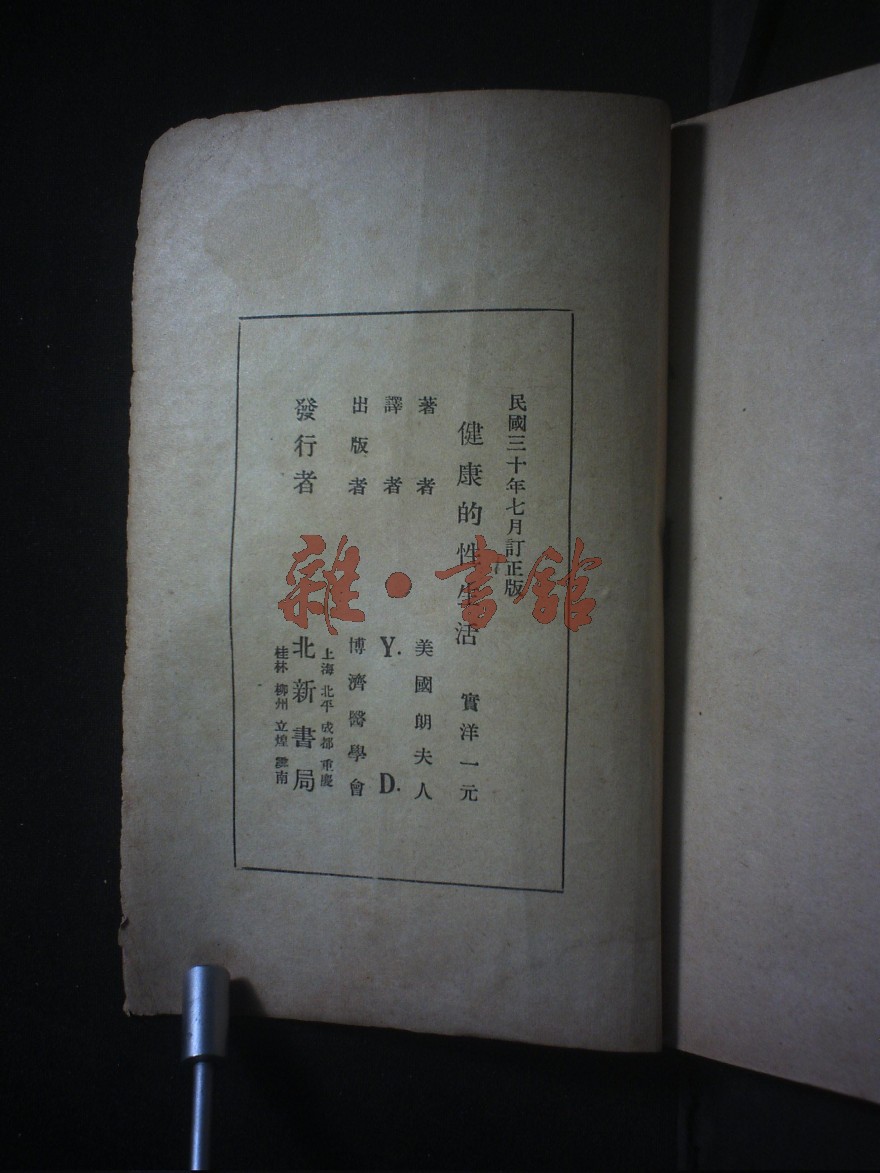 民國三十年七月訂正版
健康的性生活 實洋一元
著者 美國朗夫人
譯者 Y. D.
出版者 博濟醫學會
發行者 北新書局
上海 北平 成都 重慶
桂林 柳州 立煌 雲南
雜·書館